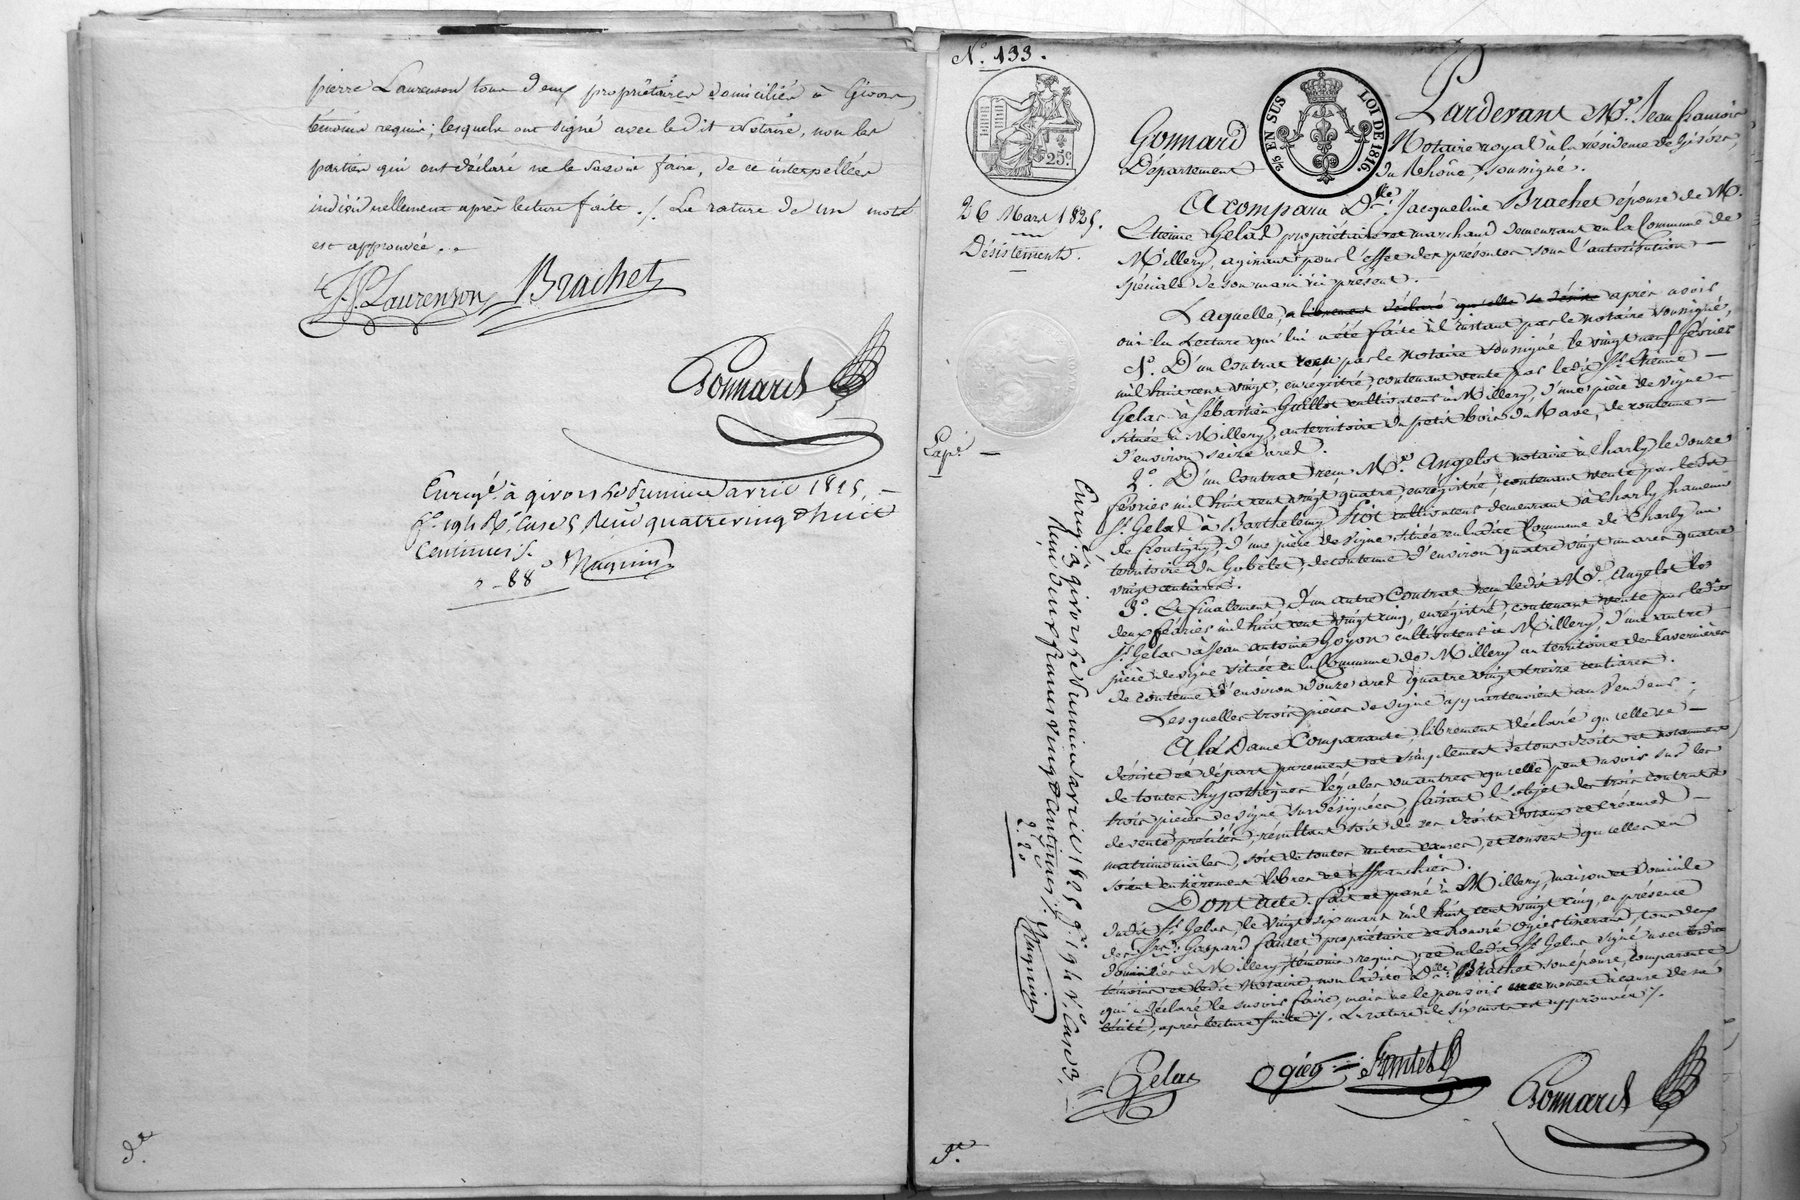 pierre Laurenson tous deux propriétaires domiciliés à Givors,
témoins requis; lesquels ont signé avec le dit Notaire, non les
parties qui ont déclaré ne le savoir faire, de ce interpellées
individuellement après lecture faite ./. La rature de un mots
est approuvée..
J.P. Laurenson Brachet
Gonnard
Enregé. à givors le  avril 1825,
fo. 194 Ro. Case 5 Reçu quatre vingt huit
Centimes /.
2-88c
Mugnier
de.
No. 133.
25c.
26 Mars 1825.
Désistement.
2/6 EN SUS
LOI DE 1816
Pardevant Me. Jean francois
Gonnard Notaire royal à la résidence de Givors,
Département du Rhône, soussigné.
A comparu De. Jacqueline Brachet épouse de M.
Etienne Gelas propriétaire et marchand demeurant en la Commune de
Millery, agissant pour l'effet des présentes sous l'autorisation
spéciale de son mari ici présent.
Laquelle, a librement déclaré qu'elle se désiste après avoir
oui la Lecture qui lui a été faite à l'instant par le notaire soussigné,
1o. D'un Contrat reçu par le notaire soussigné le vingt neuf février
mil huit cent vingt, enrégistré, contenant vente par ledit Sr. Etienne
Gelas à Sébastien Guillot cultivateur à Millery, d'une pièce de vigne
située à Millery, au territoire du petit bois du Rave, de contenue
d'environ seize ares.
2o. D'un Contrat reçu Me. Angelot notaire à Charly le douze
février mil huit cent vingt quatre, enrégistré, contenant vente par ledit
Sr. Gelas à Barthelemy cultivateur demeurant à Charly hameau
de Frontigny, d'une pièce de vigne située en la dite Commune de Charly au
territoire du Gobelet, de contenue d'environ quatre vingt un ares quatre
vingt centiares.
3o. Et finalement, d'un autre Contrat reçu le dit Me. Angelot le
deux février mil huit cent vingt cinq, enrégistré, contenant vente par ledit
Sr. Gelas à Jean antoine Goyon cultivateur à Millery, d'une autre
pièce de vigne située en la Commune de Millery au territoire des
de contenue d'environ douze ares quatre vingt treize centiares.
Lesquelles trois pièces de vigne appartenaient au Vendeur;
A la Dame Comparante, librement déclaré qu'elle se
désiste et départ purement et simplement de tous droits et notamment
de toutes hypothèques légales ou autres qu'elle peut avoir sur les
trois pièces de vigne susdésignées, faisant l'objet des trois contrats
de vente précités, résultant soit de ses droits dotaux et créances
matrimoniales, soit de toutes autres causes, et consent qu'elles en
soient entièrement libres et affranchies.
Dont acte. fait et passé à Millery, maison et Domicile
dudit Sr. Gelas, le vingt six mars mil huit cent vingt cinq, en présence
des Srs. Gaspard fantet propriétaire et honoré Ogier tisserand, tous deux
domiciliés à Millery, témoins requis; et a ledit Sr. Gelas signé avec lesdits
témoins et ledit Notaire, non ladite De. Brachet son épouse, comparante
qui a déclaré le savoir faire, mais ne le pouvoir en ce moment à cause de sa
 après lecture faite ./. La rature de six mots est approuvée ./.
Gelas Ogier Fantet
Gonnard
Enregé. à givors le  avril 1825 fo. 194 Vo. Case 3,
Reçu deux francs vingt centimes /.
2.20
Mugnier
de.